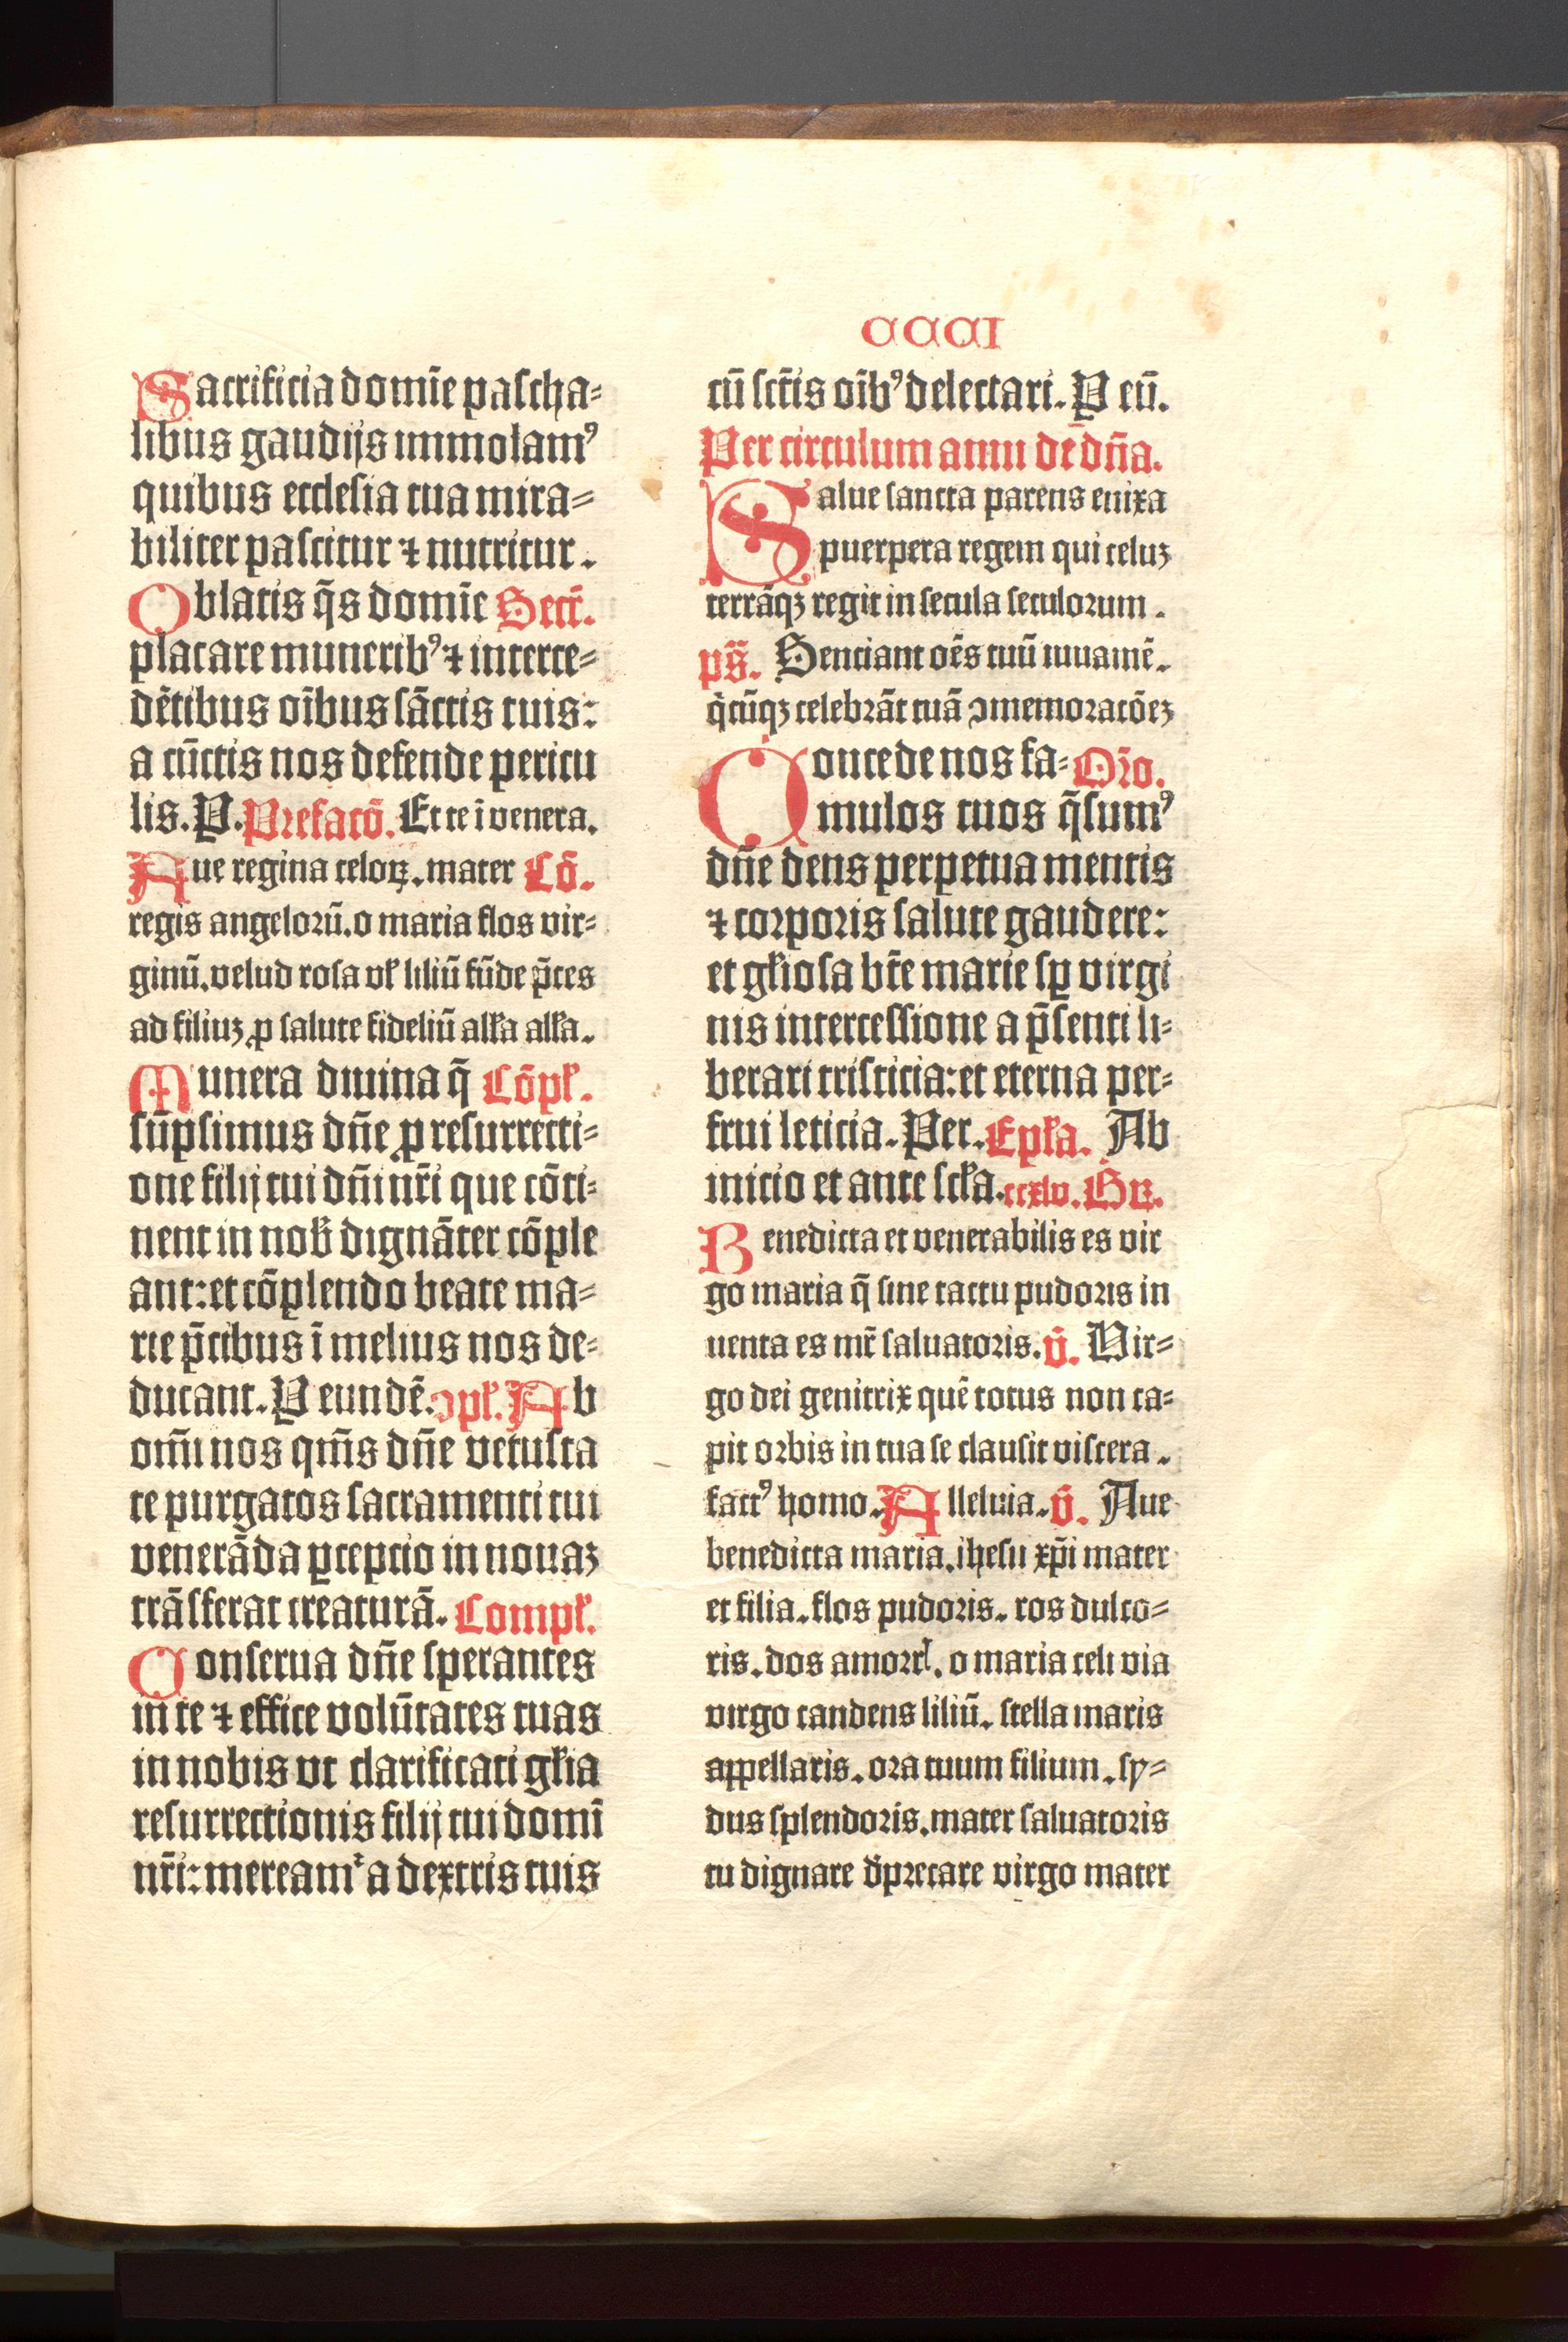 CCCI
Sacrificia domīe pascha⸗
libus gaudijs immolamꝰ
quibus ecclesia tua mira⸗
biliter pascitur ⁊ nutritur.
Oblatis q̄s domīe Secr̄.
placare muneribꝰ ⁊ interce⸗
dētibus oībus sāctis tuis:
a cūctis nos defende pericu
lis. P. Prefacō. Et te ī venera.
Aue regina celoꝝ. mater Cō.
regis angelorū. o maria flos vir⸗
ginū. velud rosa vł liliū fūde p̄ces
ad filiuꝫ ꝓ salute fideliū ałła ałła.
Munera diuina q̄ Cōpł.
sūpsimus dn̄e ꝓ resurrecti⸗
one filij tui dn̄i nr̄i que cōti⸗
nent in nob̄ dignāter cōple
ant: et cōplendo beate ma⸗
rie p̄cibus ī melius nos de⸗
ducant. P eundē. ↄpł. Ab
om̄i nos qm̄s dn̄e vetusta
te purgatos sacramenti tui
venerāda ꝑceptio in nouaꝫ
trāsferat creaturā. Compł.
Conserua dn̄e sperantes
in te ⁊ effice volūtates tuas
in nobis vt clarificati głia
resurrectionis filij tui domī
nr̄i: mereamᷣ a dextris tuis
cū sct̄is oīb⁹ delectari. P eū.
Per circulum anni dē dn̄a.
Salue sancta parens enixa
puerpera regem qui celuꝫ
terrāqꝫ regit in secula seculorum.
ps̄. Senciant oēs tuū iuuamē.
q̇cūqꝫ celebrāt tuā ↄmemoracōeꝫ
Concede nos fa⸗ Oro.
mulos tuos q̄sumꝰ
dn̄e deus perpetua mentis
⁊ corporis salute gaudere:
et głiosa bt̄e marie sꝑ virgi
nis intercessione a p̄senti li⸗
berari tristicia: et eterna per⸗
frui leticia. Per. Epła. Ab
inicio et ante scła. ccxlv. Gꝝ.
Benedicta et venerabilis es vir
go maria q̄ sine tactu pudoris in
uenta es mr̄ saluatoris. v̄. Vir⸗
go dei genitrix quē totus non ca⸗
pit orbis in tua se clausit viscera.
factꝰ homo. Alleluia. v̄. Aue
benedicta maria. ihesu xp̄i mater
et filia. flos pudoris. ros dulco⸗
ris. dos amorꝭ. o maria celi via
virgo candens liliū. stella maris
appellaris. ora tuum filium. sy⸗
dus splendoris. mater saluatoris
tu dignare dp̄recare virgo mater